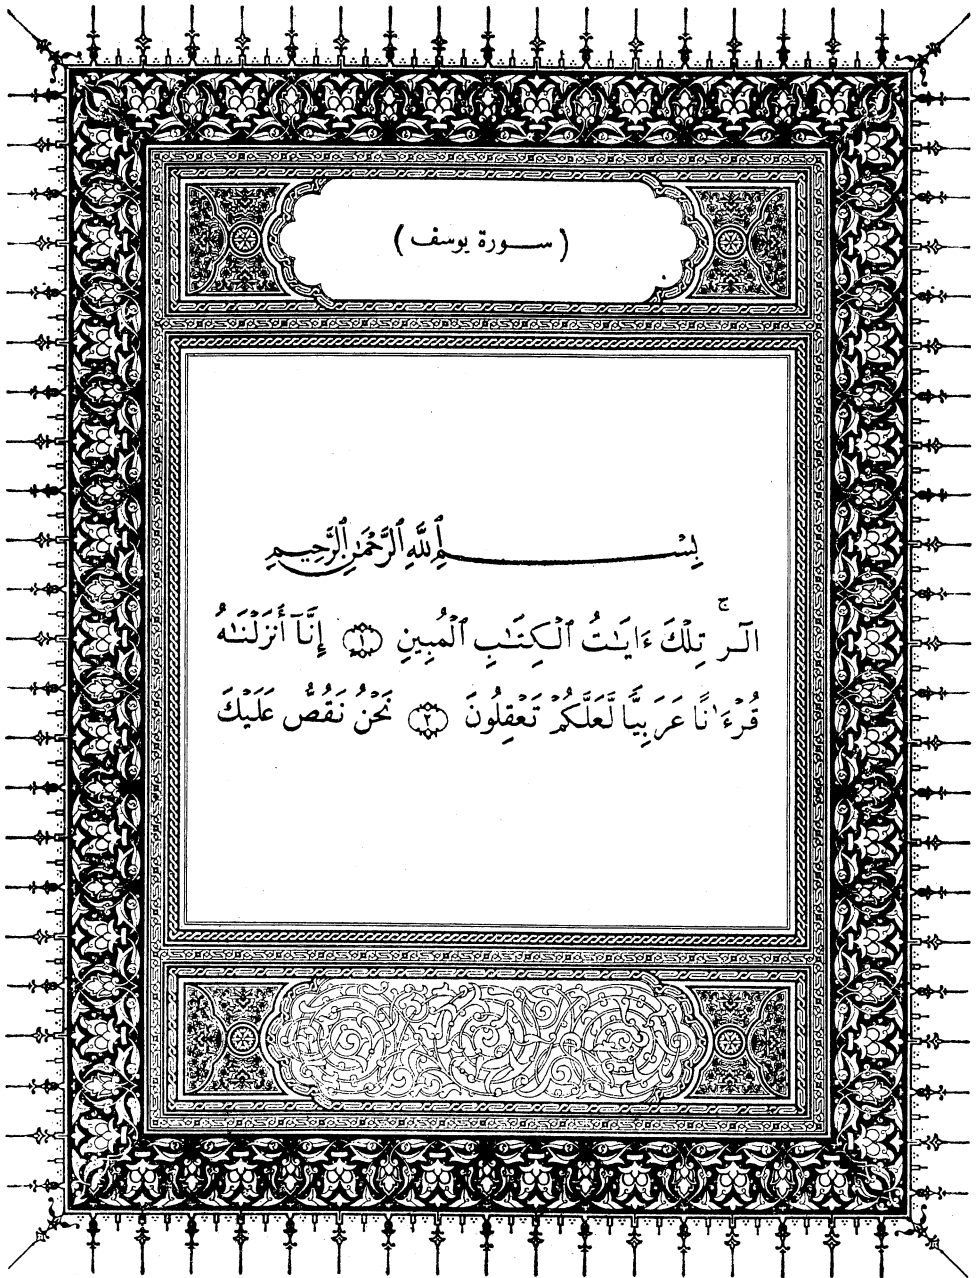 ( سورة يوسف )
بِسْمِ ٱللَّهِ ٱلرَّحْمَٰنِ ٱلرَّحِيمِ
الٓرۚ تِلْكَ ءَايَٰتُ ٱلْكِتَٰبِ ٱلْمُبِينِ ﴿١﴾ إِنَّآ أَنزَلْنَٰهُ
قُرْءَٰنًا عَرَبِيًّا لَّعَلَّكُمْ تَعْقِلُونَ ﴿٢﴾ نَحْنُ نَقُصُّ عَلَيْكَ